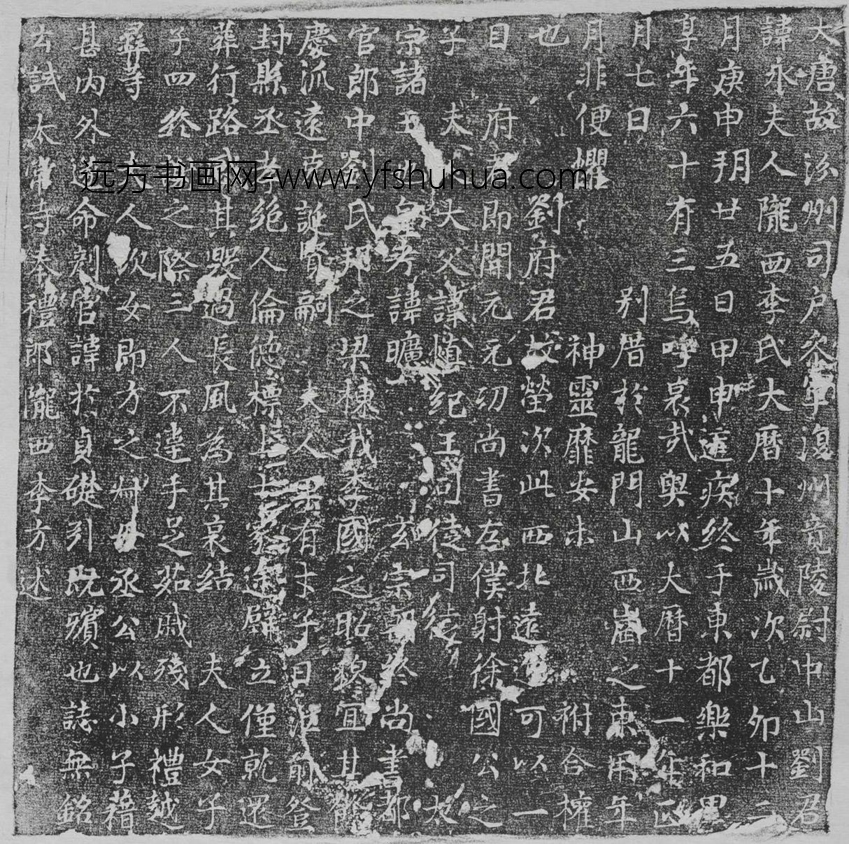 大唐故汾州司户參軍復州竟陵尉中山劉君
諱永夫人隴西李氏大曆十年歲次乙卯十二
月庚申朔廿五日甲申遘疾終于東都樂和里
享年六十有三烏呼哀哉輿以大曆十一年
月七日 别厝於龍門山西嵓之東用年
月非便懼 神靈靡安未 祔合權
也 劉府君故塋次此西北遠 可以一
目 府君即開元元初尚書左僕射徐國公之
子 夫 大父諱慎紀王司徒司 太
宗諸王 皇考諱曠 玄宗朝終尚書都
官郎中劉氏邦之梁棟我李國之昭 宜其
慶流遠 誕賢嗣 夫人 有才子曰 前登
封縣丞 絕人倫德標 立僅就還
葬行路 其哭過長風為其哀結 夫人女子
子四終 之際三人不違手足茹戚殘形禮越
彝等 人次女即方之 母丞公以小子藉
甚内外 命剋官諱於貞礎引既殯也誌無銘
云試太常寺奉禮郎隴西李方述
远方书画网-www.yfshuhua.com